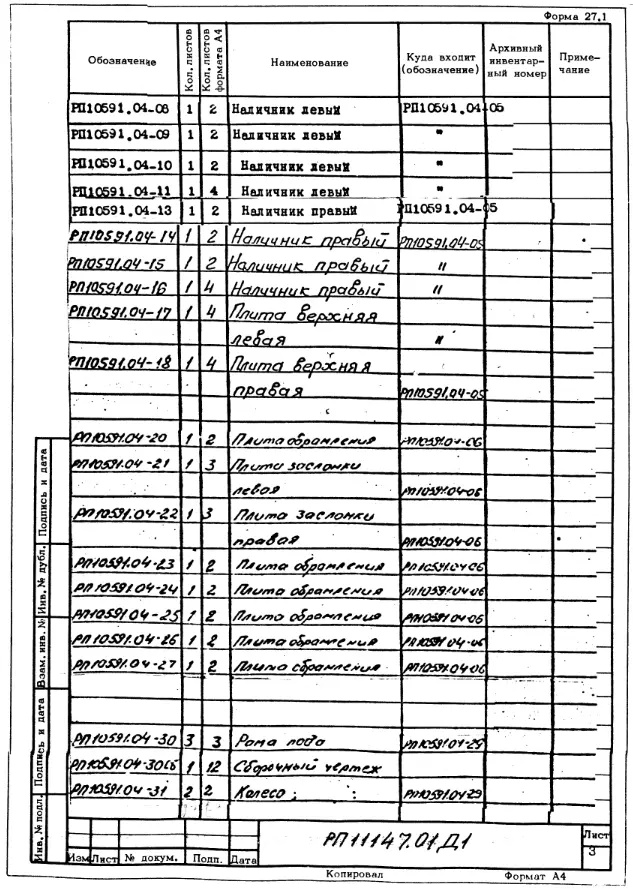 Форма 27.1
Обозначение Кол. листов Кол. листов формата А4 Наименование Куда входит (обозначение) Архивный инвентарный номер Примечание
РП10591.04-08 1 2 Наличник левый РП10591.04-05
РП10591.04-09 1 2 Наличник левый "
РП10591.04-10 1 2 Наличник левый "
РП10591.04-11 1 4 Наличник левый "
РП10591.04-13 1 2 Наличник правый РП10591.04-05
РП10591.04-14 1 2 Наличник правый РП10591.04-05
РП10591.04-15 1 2 Наличник правый "
РП10591.04-16 1 4 Наличник правый "
РП10591.04-17 1 4 Плита верхняя
левая "
РП10591.04-18 1 4 Плита верхняя
правая РП10591.04-05
РП10591.04-20 1 2 Плита обрамления РП10591.04-06
РП10591.04-21 1 3 Плита заслонки
левая РП10591.04-06
РП10591.04-22 1 3 Плита заслонки
правая РП10591.04-06
РП10591.04-23 1 2 Плита обрамления РП10591.04-06
РП10591.04-24 1 2 Плита обрамления РП10591.04-06
РП10591.04-25 1 2 Плита обрамления РП10591.04-06
РП10591.04-26 1 2 Плита обрамления РП10591.04-06
РП10591.04-27 1 2 Плита обрамления РП10591.04-06
РП10591.04-30 3 3 Рама пода РП10591.04-29
РП10591.04-30СБ 1 12 Сборочный чертеж
РП10591.04-31 2 2 Колесо РП10591.04-29
Подпись и дата
Инв. № дубл.
Взам. инв. №
Подпись и дата
Инв. № подл.
РП11147.01Д1
Лист
3
Изм Лист № докум. Подп. Дата
Копировал Формат А4